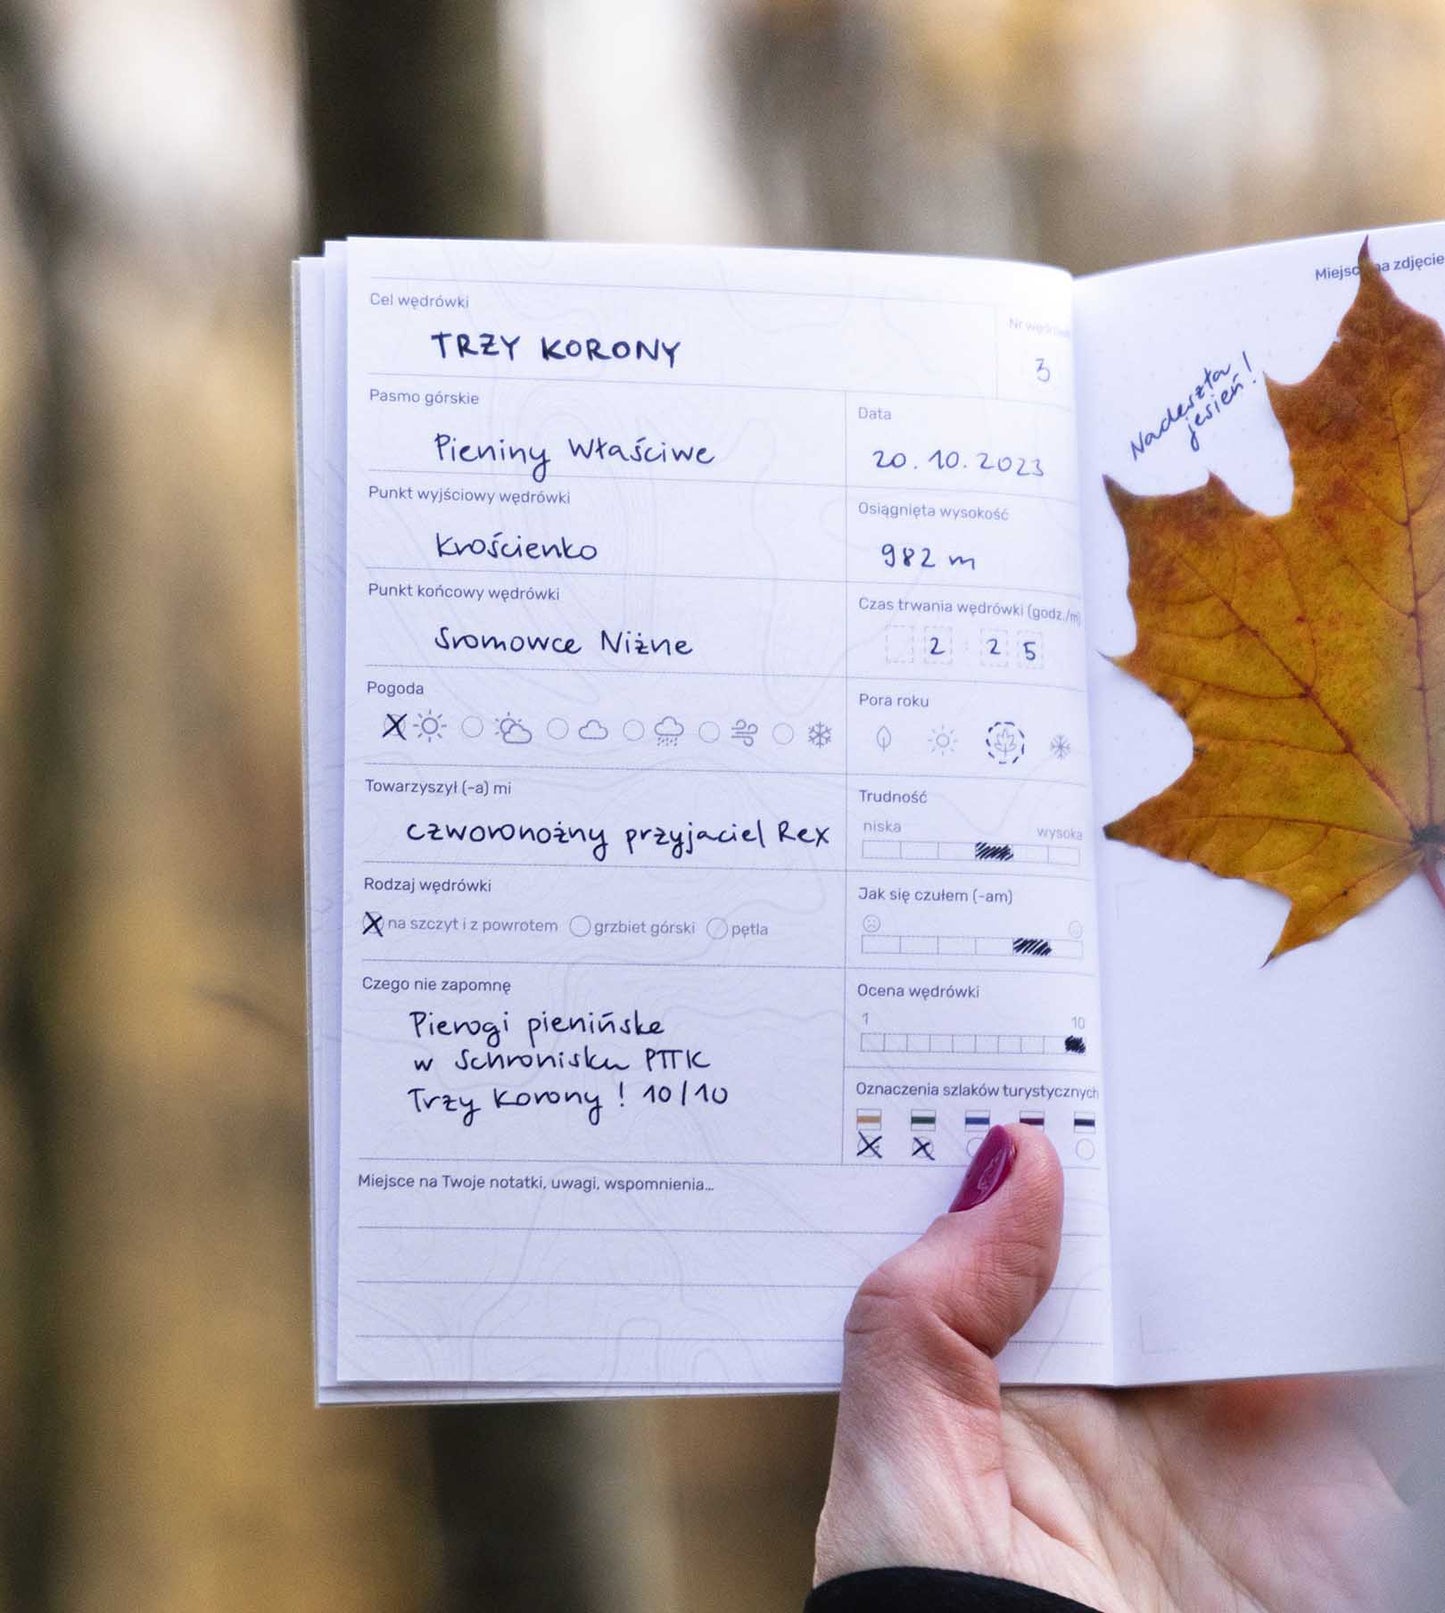 Cel wędrówki
TRZY KORONY
Nr wędrówki
3
Pasmo górskie
Pieniny Właściwe
Data
20.10.2023
Punkt wyjściowy wędrówki
Krościenko
Osiągnięta wysokość
982 m
Punkt końcowy wędrówki
Sromowce Niżne
Czas trwania wędrówki (godz./m
2 25
Pogoda
X
Pora roku
Towarzyszył (-a) mi
czworonożny przyjaciel Rex
Trudność
niska wysoka
Rodzaj wędrówki
X na szczyt i z powrotem grzbiet górski pętla
Jak się czułem (-am)
Czego nie zapomnę
Pierogi pienińske
w Schronisku PTTK
Trzy Korony ! 10/10
Ocena wędrówki
1 10
Oznaczenia szlaków turystycznych
X X
Miejsce na Twoje notatki, uwagi, wspomnienia...
na zdjęcie
Nadeszła
jesień!